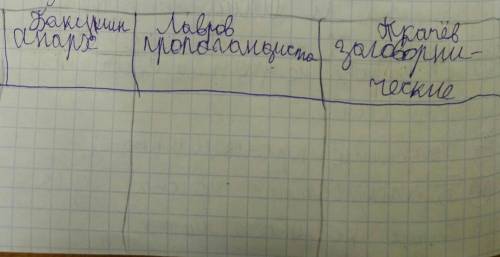 Бакунин
анарх
Лавров
пропагандиста
Ткачёв
заговорни-
ческие